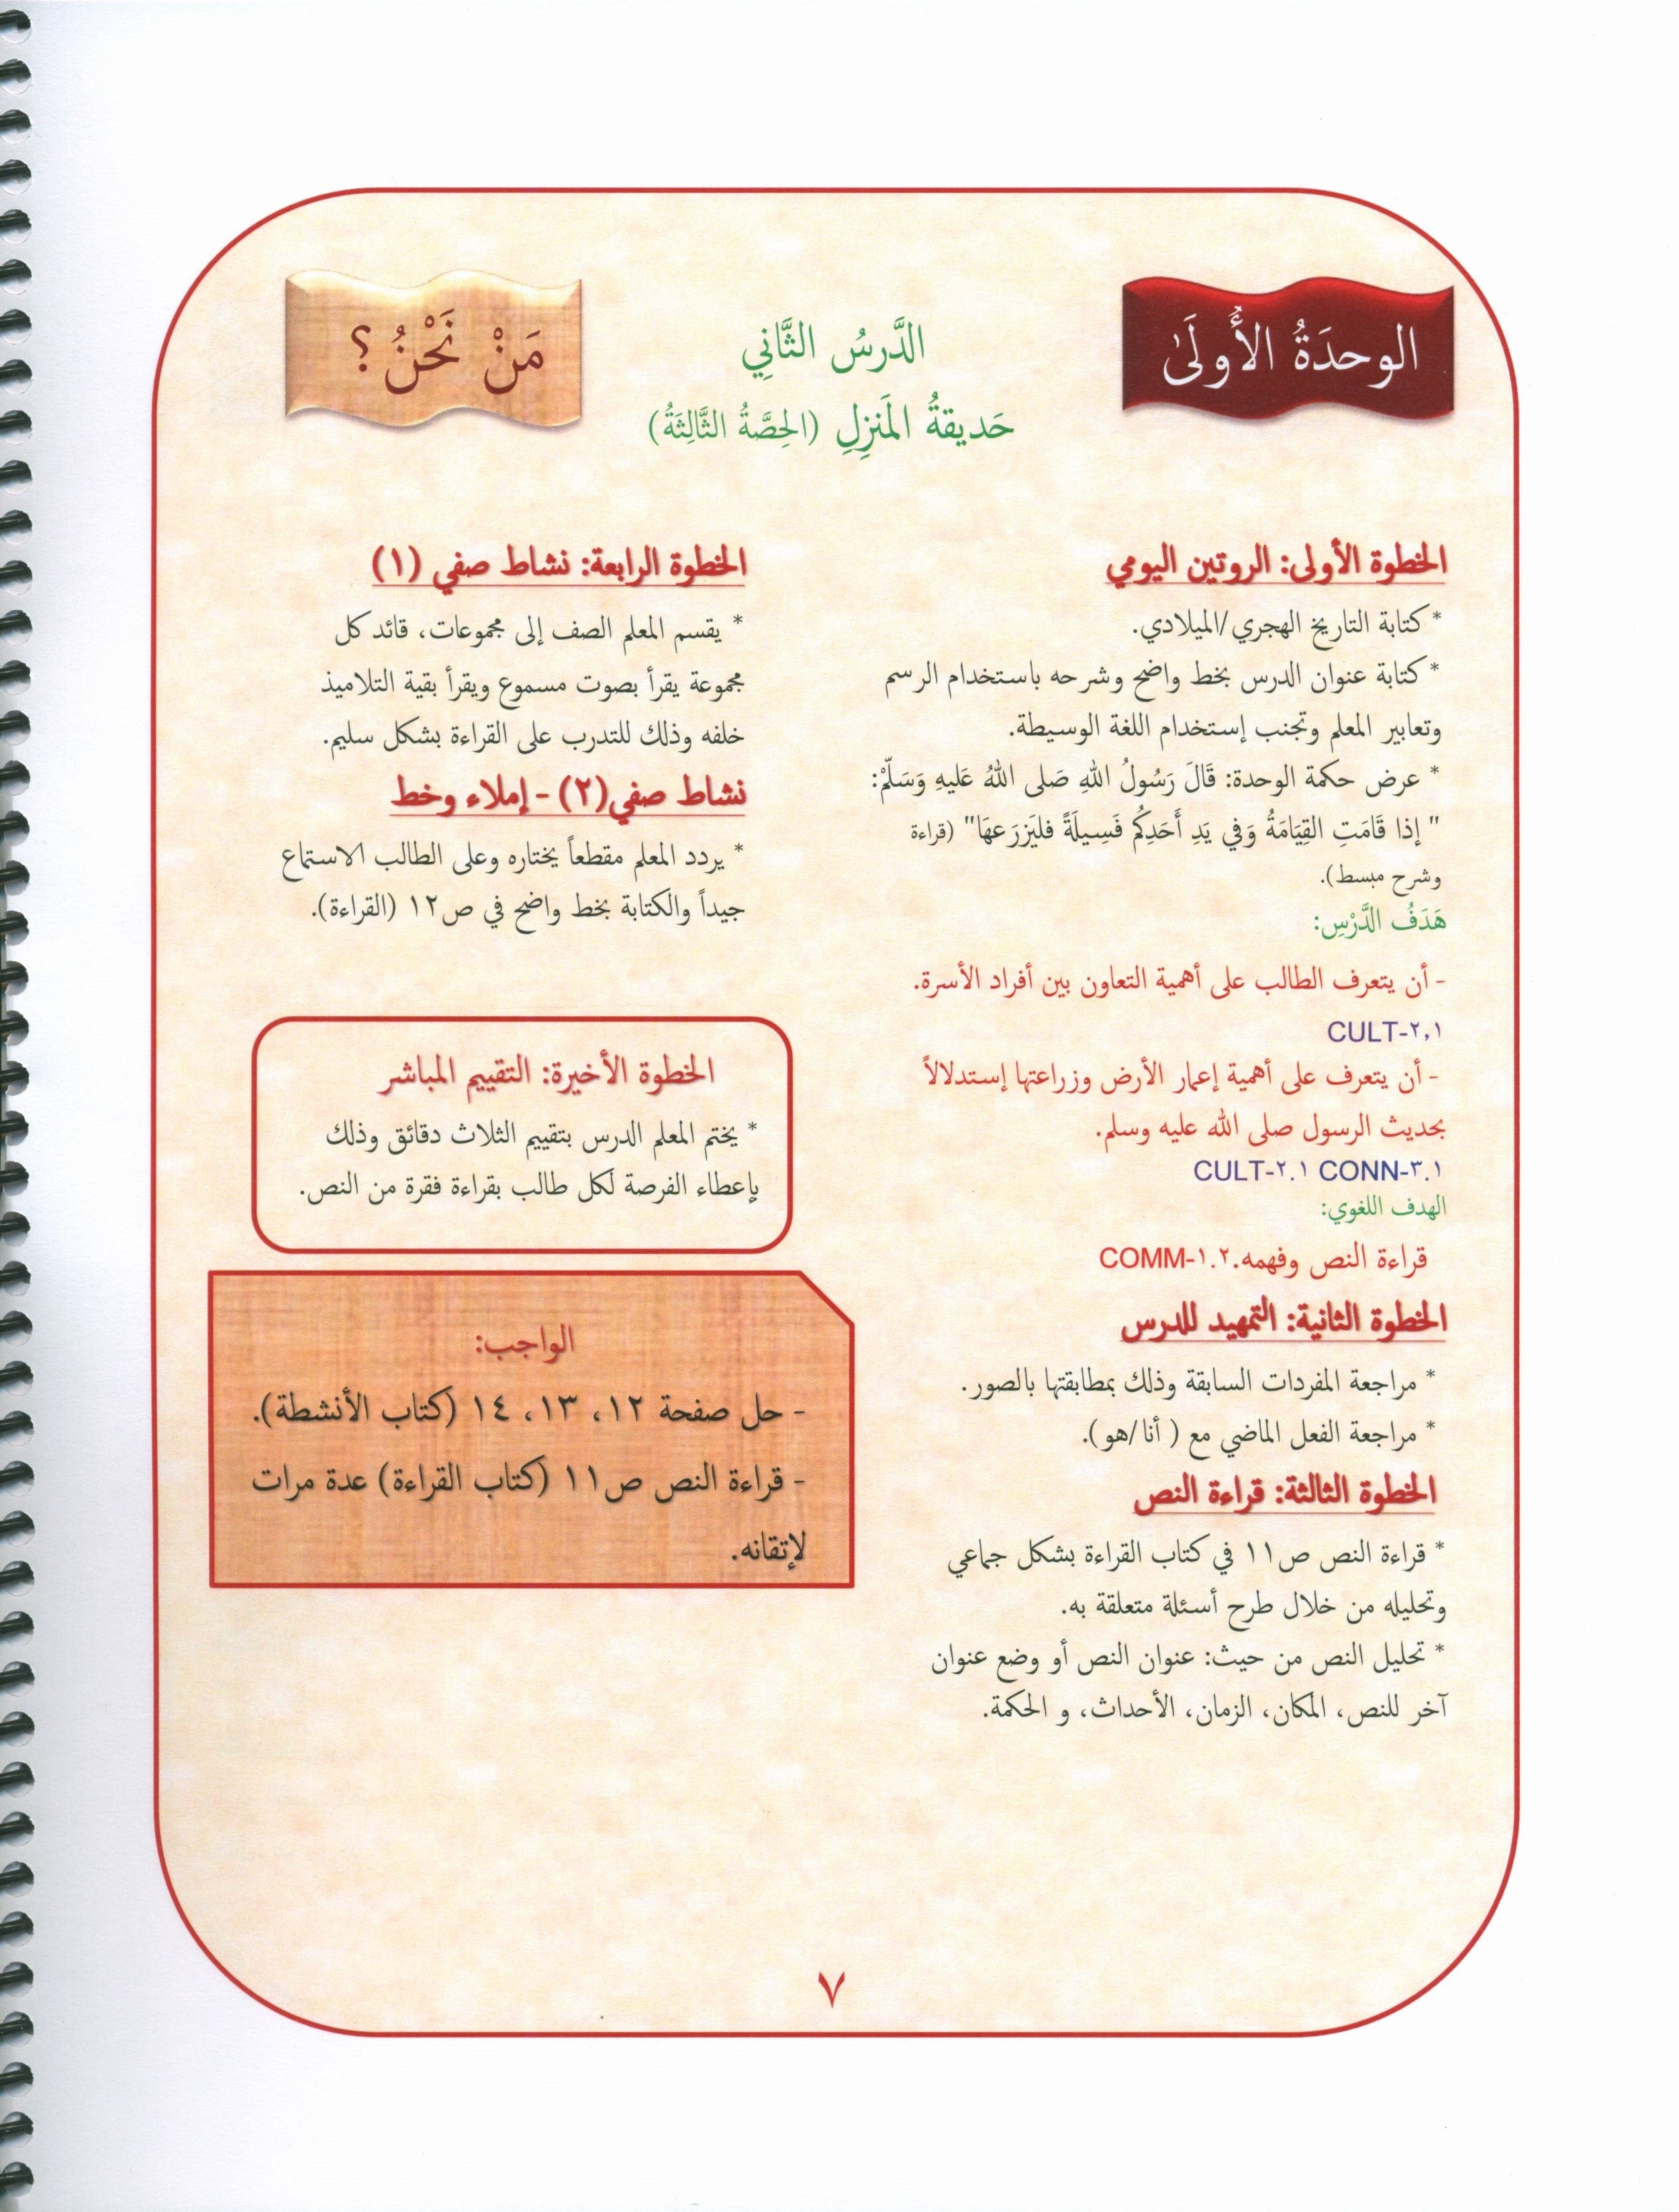 الوحدَةُ الأُولَىٰ
الدَّرسُ الثَّانِي
حَديقةُ المَنزِلِ (الحِصَّةُ الثَّالِثَةُ)
مَنْ نَحْنُ ؟
الخطوة الأولى: الروتين اليومي
* كتابة التاريخ الهجري/الميلادي.
* كتابة عنوان الدرس بخط واضح وشرحه باستخدام الرسم
وتعابير المعلم وتجنب إستخدام اللغة الوسيطة.
* عرض حكمة الوحدة: قَالَ رَسُولُ اللهِ صَلى اللهُ عَليهِ وَسَلّمْ:
" إذا قَامَتِ القِيَامَةُ وَفي يَدِ أَحَدِكُم فَسِيلَةً فليَزرَعهَا" (قراءة
وشرح مبسط).
هَدَفُ الدَّرْسِ:
- أن يتعرف الطالب على أهمية التعاون بين أفراد الأسرة.
CULT-٢,١
- أن يتعرف على أهمية إعمار الأرض وزراعتها إستدلالاً
بحديث الرسول صلى الله عليه وسلم.
CULT-٢.١ CONN-٣.١
الهدف اللغوي:
قراءة النص وفهمه.COMM-١.٢
الخطوة الثانية: التمهيد للدرس
* مراجعة المفردات السابقة وذلك بمطابقتها بالصور.
* مراجعة الفعل الماضي مع ( أنا/هو).
الخطوة الثالثة: قراءة النص
* قراءة النص ص١١ في كتاب القراءة بشكل جماعي
وتحليله من خلال طرح أسئلة متعلقة به.
* تحليل النص من حيث: عنوان النص أو وضع عنوان
آخر للنص، المكان، الزمان، الأحداث، و الحكمة.
الخطوة الرابعة: نشاط صفي (١)
* يقسم المعلم الصف إلى مجموعات، قائد كل
مجموعة يقرأ بصوت مسموع ويقرأ بقية التلاميذ
خلفه وذلك للتدرب على القراءة بشكل سليم.
نشاط صفي(٢) - إملاء وخط
* يردد المعلم مقطعاً يختاره وعلى الطالب الاستماع
جيداً والكتابة بخط واضح في ص١٢ (القراءة).
الخطوة الأخيرة: التقييم المباشر
* يختم المعلم الدرس بتقييم الثلاث دقائق وذلك
بإعطاء الفرصة لكل طالب بقراءة فقرة من النص.
الواجب:
- حل صفحة ١٢، ١٣، ١٤ (كتاب الأنشطة).
- قراءة النص ص١١ (كتاب القراءة) عدة مرات
لإتقانه.
٧